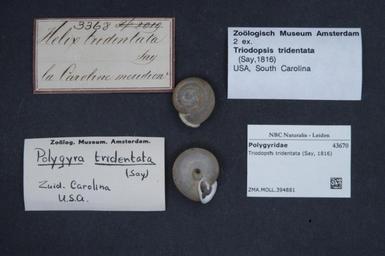 3368
Helix tridentata
Say
la Caroline meridion.
Zoölogisch Museum Amsterdam
2 ex.
Triodopsis tridentata
(Say,1816)
USA, South Carolina
Zoölog. Museum. Amsterdam.
Polygyra tridentata
(Say)
Zuid. Carolina
U.S.A.
NBC Naturalis - Leiden
Polygyridae 43670
Triodopsis tridentata (Say, 1816)
ZMA.MOLL.394881